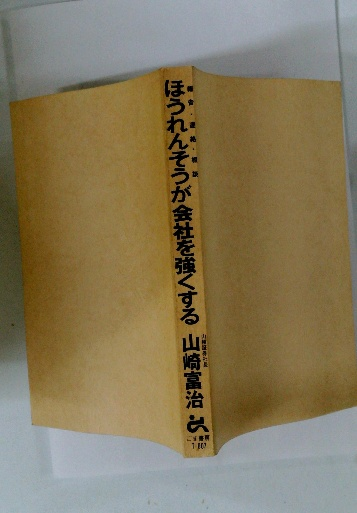 報告・連絡・相談
ほうれんそうが会社を強くする
山崎富治
ごま書房